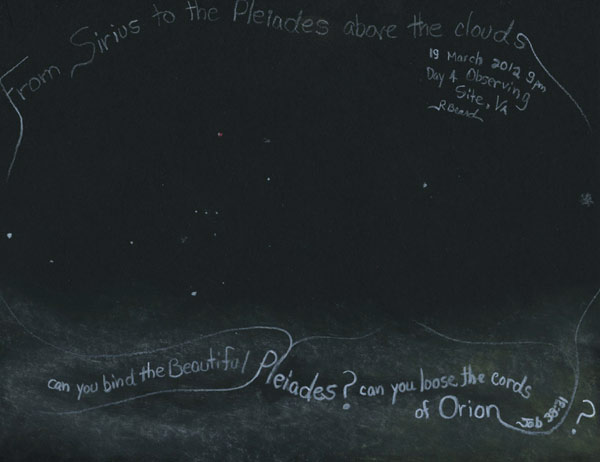 From Sirius to the Pleiades above the clouds
19 March 2012 9pm
Day 4 Observing
Site, VA
can you bind the Beautiful Pleiades? can you loose the cords
of Orion
Job 38:31
?